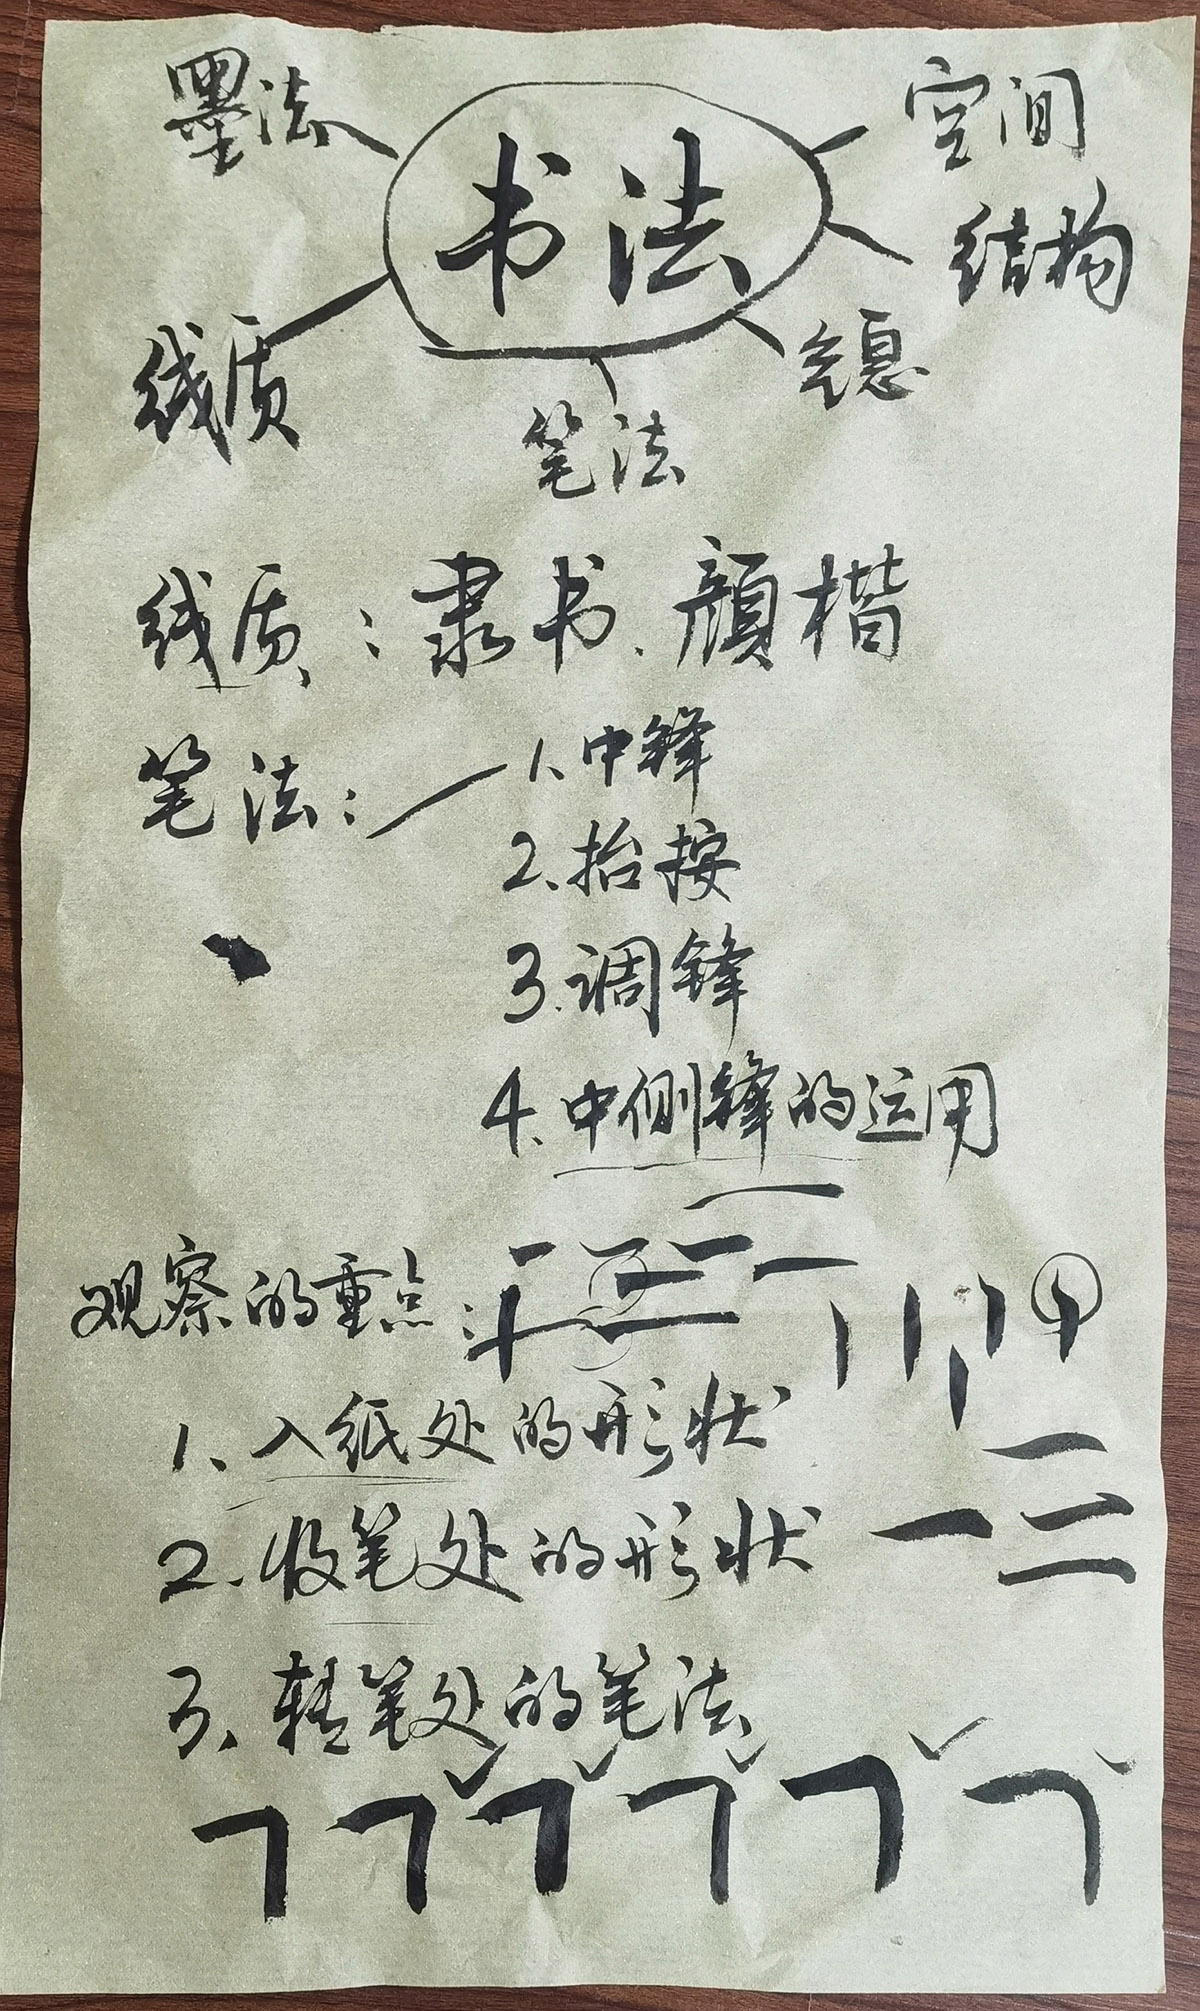 墨法
空间
书法
结构
线质
气息
笔法
线质：隶书、颜楷
笔法：1、中锋
2、抬按
3、调锋
4、中侧锋的运用
观察的重点：
1、入纸处的形状
2、收笔处的形状
3、转笔处的笔法